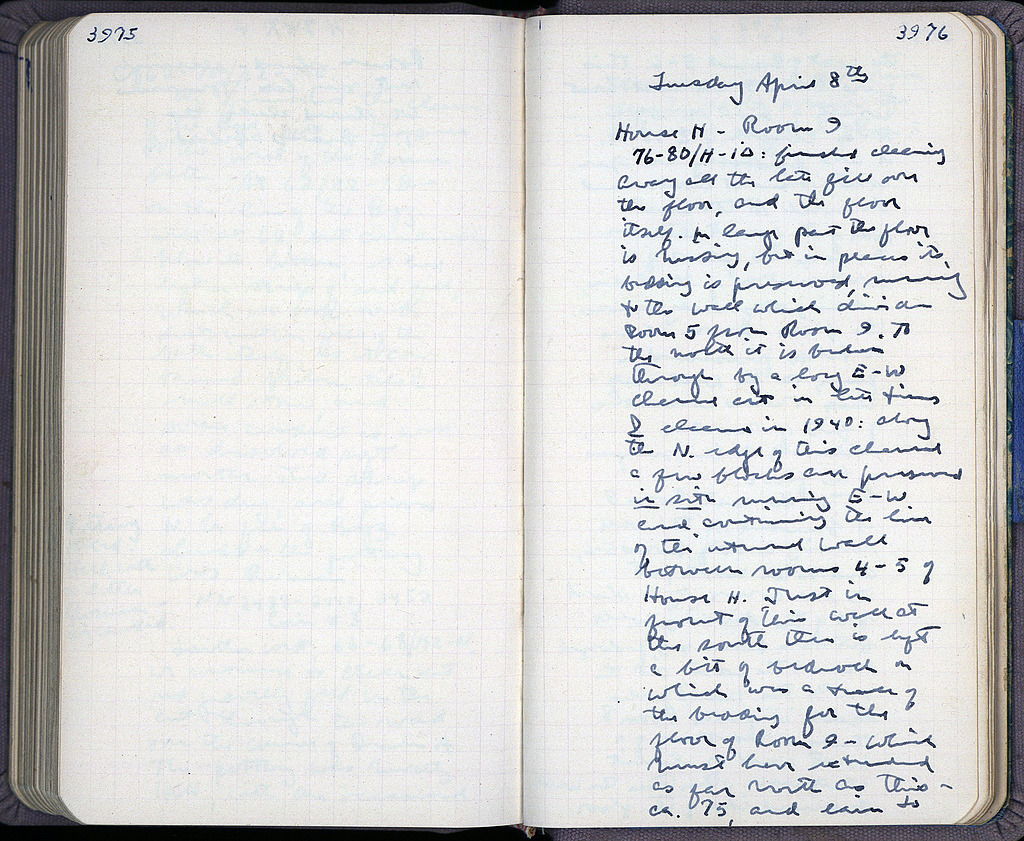 3975
3976
Tuesday April 8th
House H - Room 9
76-80/H-ΙΔ: finished cleaning
away all the late fill over
the floor, and the floor
itself. In large part the floor
is missing, but in places its
bedding is preserved, running
to the wall which divides
Room 5 from Room 9. To
the north it is broken
through by a long E-W
channel cut in late times
& cleaned in 1940: along
the N. edge of this channel
a few blocks are preserved
in situ running E-W
and continuing the line
of the internal wall
between rooms 4-5 of
House H. Just in
front of this wall at
the south there is left
a bit of bedrock on
which was a trace of
the bedding for the
floor of Room 9 - which
must have extended
as far north as this -
ca. 75, and lain to